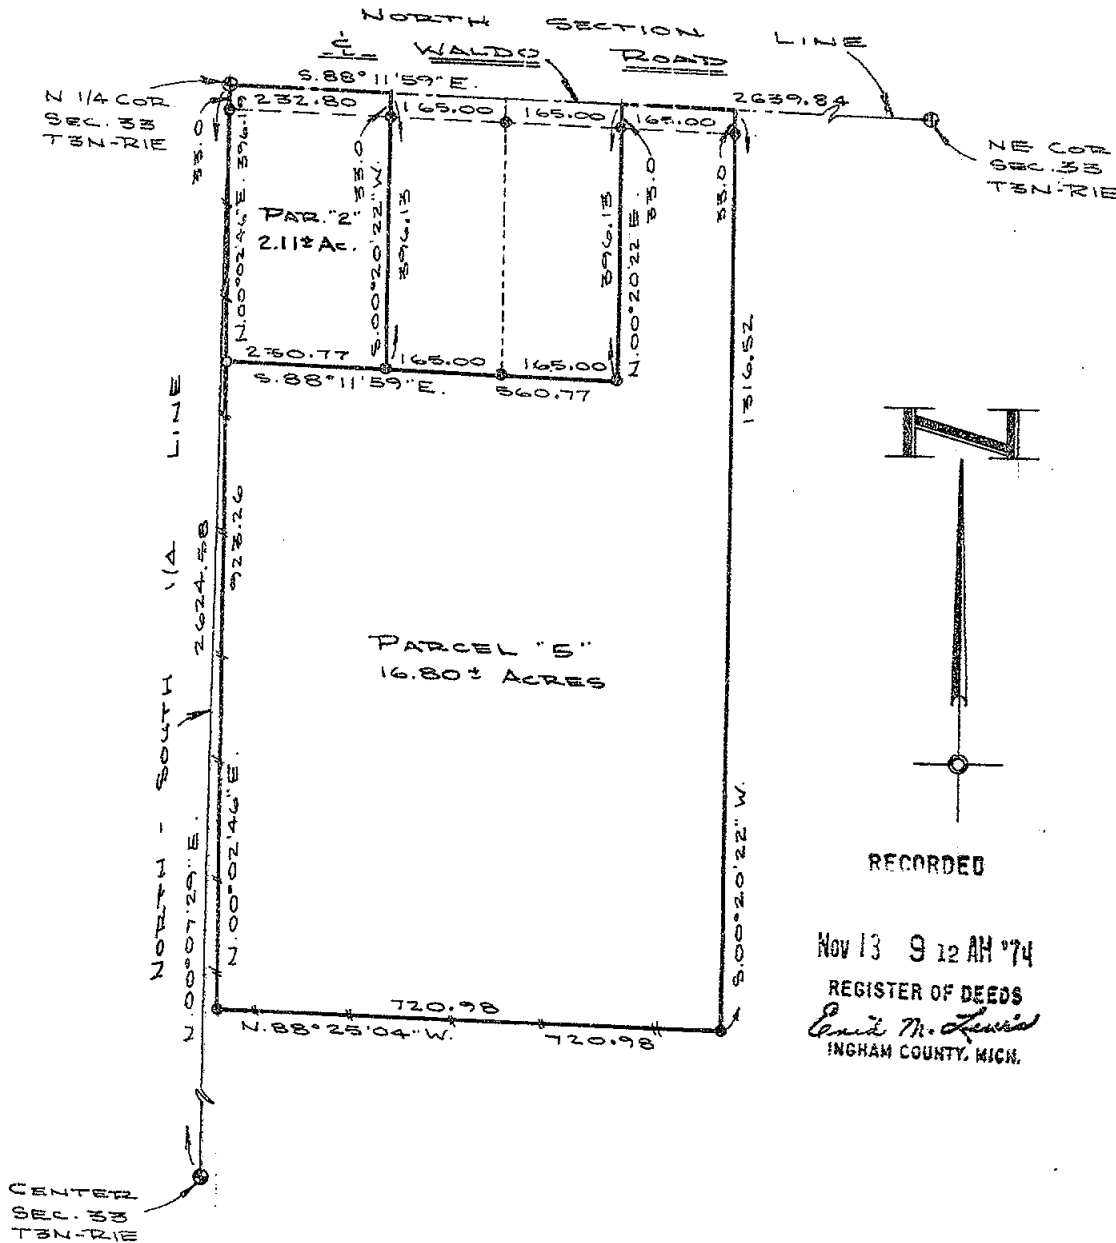 NORTH SECTION LINE
℄ WALDO ROAD
S.88°11'59"E.
N 1/4 COR.
SEC. 33
T3N-R1E
232.80
165.00
165.00
165.00
2639.84
NE COR
SEC. 33
T3N-R1E
33.0
33.0
33.0
33.0
N.00°02'46"E. 396.19
PAR. "2"
2.11± Ac.
S.00°20'22"W.
396.13
396.13
N.00°20'22"E.
230.77
165.00
165.00
S.88°11'59"E.
560.77
1316.52
NORTH - SOUTH 1/4 LINE
2624.58
923.26
N
PARCEL "5"
16.80± ACRES
N.00°07'29"E.
N.00°02'46"E.
S.00°20'22"W.
720.98
N.88°25'04"W.
720.98
RECORDED
Nov 13 9 12 AM '74
REGISTER OF DEEDS
Enid M. Lewis
INGHAM COUNTY, MICH.
CENTER
SEC. 33
T3N-R1E